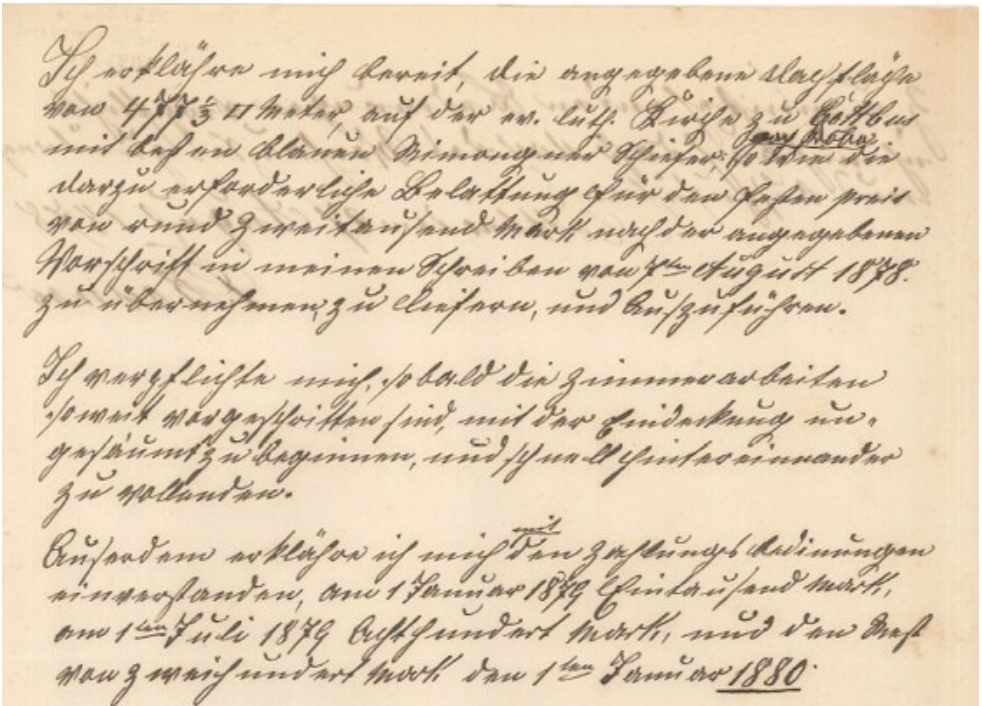 Ich erklähre mich bereit, die angegebene Dachfläche
von 477 1/3 □ Meter, auf der ev. luth. Kirche zu Cottbus
mit besten blauen Schiefer, sowie die
nach Probe
darzu erforderliche Belattung für den festen preis
von rund Zweitausend Mark nach der angegebenen
Vorschrift in meinen Schreiben von 7ten August 1878.
zu übernehmen, zu liefern, und Auszuführen.
Ich verpflichte mich, sobald die Zimmerarbeiten
soweit vorgeschritten sind, mit der Eindeckung un-
gesäumt zu beginnen, und schnell hintereinnander
zu vollenden.
Auserdem erklähre ich mich mit den Zahlungsbedinungen
einverstanden, am 1 Januar 1879 Eintausend Mark,
am 1ten Juli 1879 Achthundert Mark, und den Rest
von zweichundert Mark den 1ten Januar 1880.